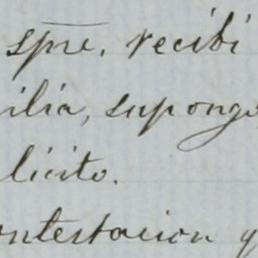 spre. recibi
ilia, supongo
licito.
ontestacion q